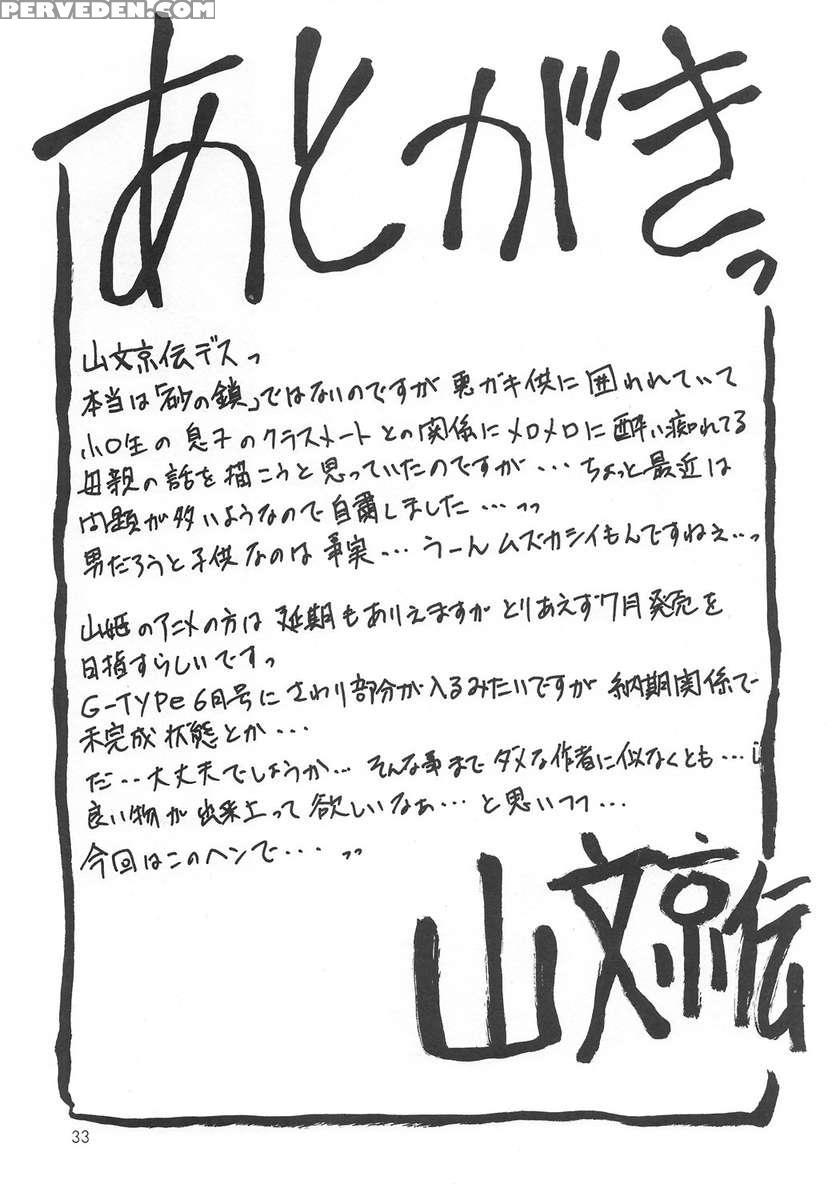 PERVEDEN.COM
あとがきっ
山文京伝デスっ
本当は「砂の鎖」ではないのですが 悪ガキ供に囲われていて
小〇生の息子のクラスメートとの関係にメロメロに酔い痴れてる
母親の話を描こうと思っていたのですが・・・ちょっと最近は
問題が多いようなので自粛しました・・・っっ
男だろうと子供なのは事実・・・うーんムズカシイもんですねぇ・・っ
山姫のアニメの方は延期もありえますがとりあえず7月発売を
目指すらしいですっ
G-TYPe 6月号にさわり部分が入るみたいですが納期関係で
未完成状態とか・・・
だ・・大丈夫でしょうか・・・そんな事までダメな作者に似なくとも・・・
良い物が出来上って欲しいなぁ・・・と思いつつ・・・
今回はこのヘンで・・・っっ
山文京伝
33